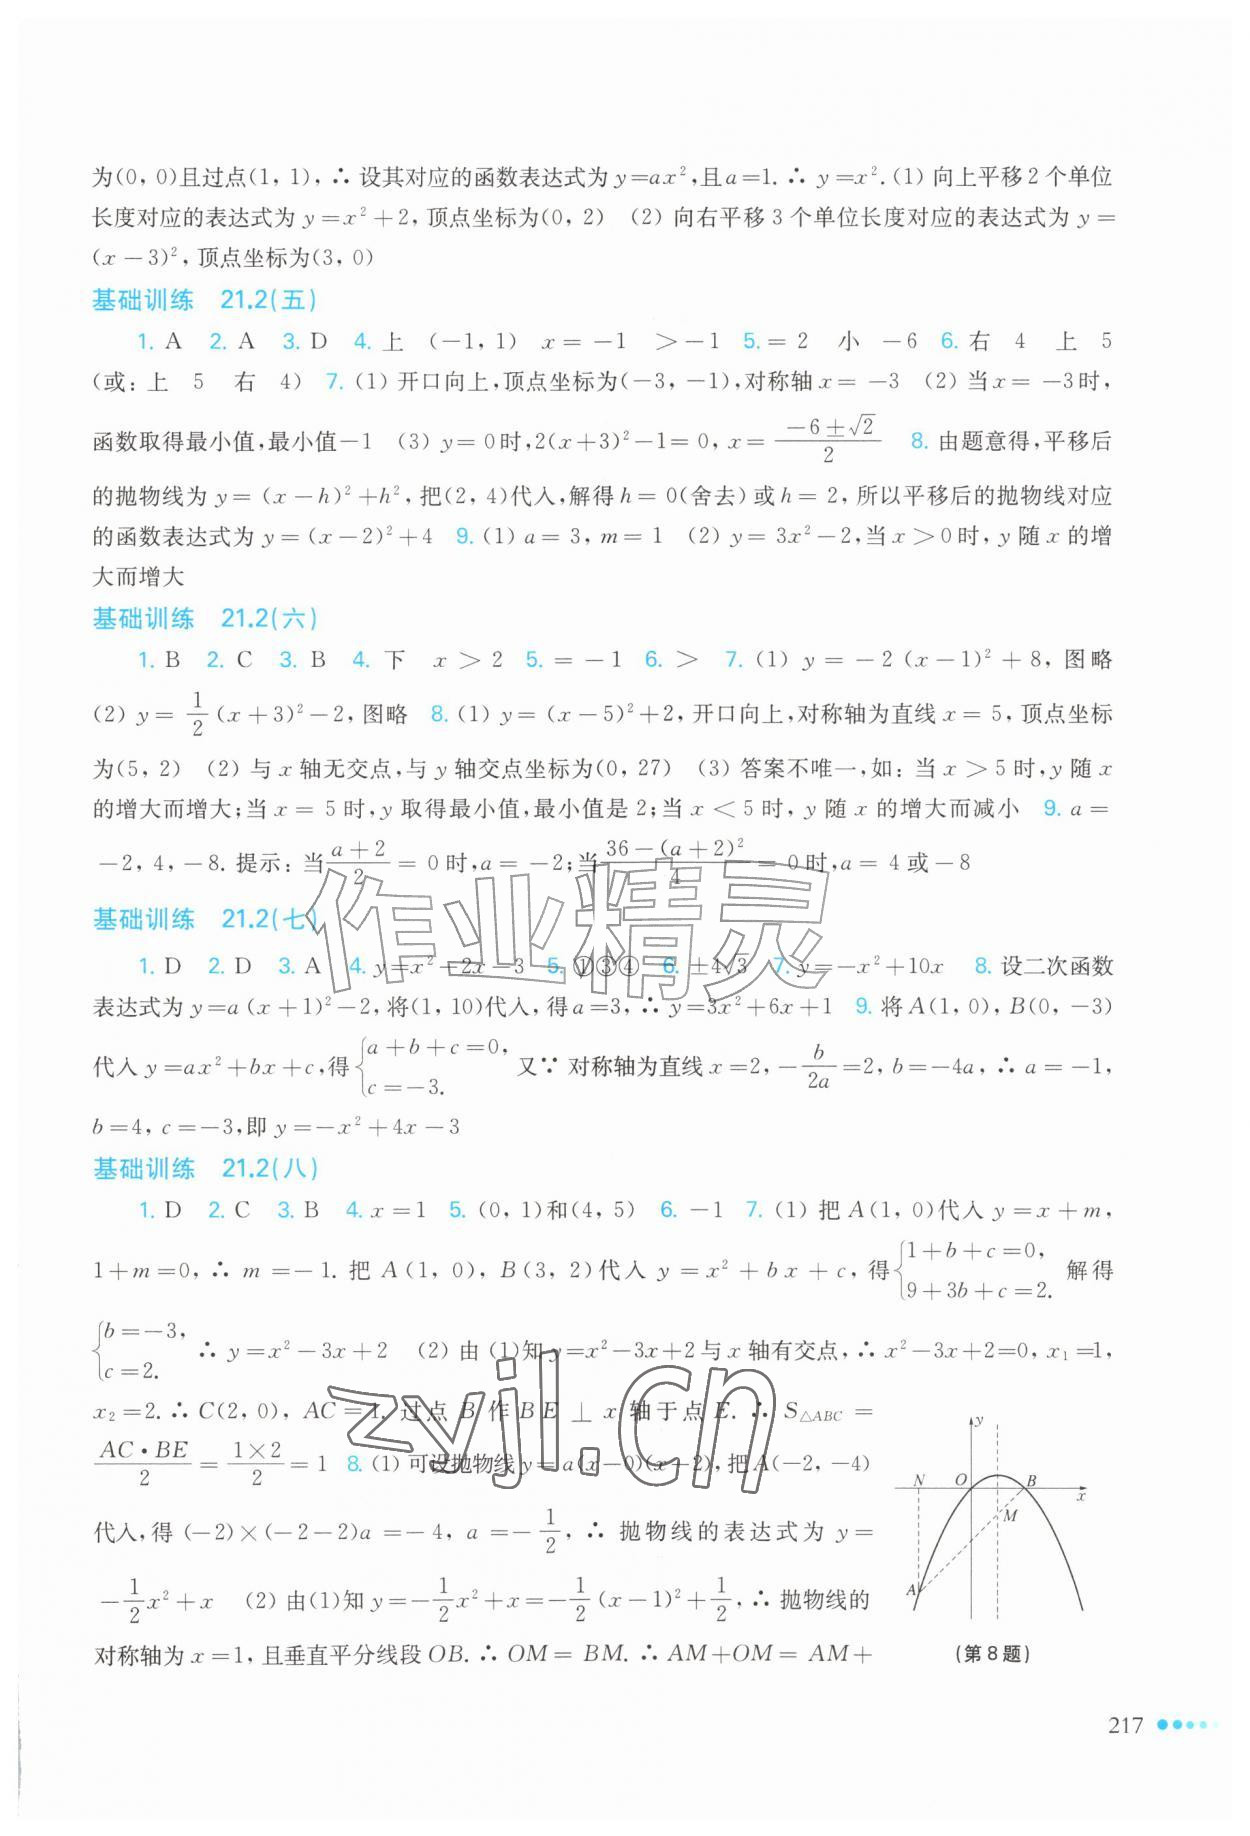 为(0, 0)且过点(1, 1), ∴ 设其对应的函数表达式为 y=ax²,且a=1. ∴ y=x². (1) 向上平移 2 个单位
长度对应的表达式为 y=x²+2, 顶点坐标为(0, 2) (2) 向右平移 3 个单位长度对应的表达式为 y=
(x-3)², 顶点坐标为(3, 0)
基础训练 21.2(五)
1. A 2. A 3. D 4. 上 (-1, 1) x=-1 >-1 5. =2 小 -6 6. 右 4 上 5
(或: 上 5 右 4) 7. (1) 开口向上,顶点坐标为(-3, -1),对称轴 x=-3 (2) 当 x=-3时,
函数取得最小值,最小值-1 (3) y=0时,2(x+3)²-1=0, x=(-6±√2)/2 8. 由题意得,平移后
的抛物线为 y=(x-h)²+h², 把(2, 4)代入,解得 h=0(舍去)或 h=2, 所以平移后的抛物线对应
的函数表达式为 y=(x-2)²+4 9. (1) a=3, m=1 (2) y=3x²-2,当 x>0时, y 随 x 的增
大而增大
基础训练 21.2(六)
1. B 2. C 3. B 4. 下 x>2 5. =-1 6. > 7. (1) y=-2(x-1)²+8, 图略
(2) y=1/2(x+3)²-2, 图略 8. (1) y=(x-5)²+2, 开口向上,对称轴为直线 x=5, 顶点坐标
为(5, 2) (2) 与 x 轴无交点,与 y 轴交点坐标为(0, 27) (3) 答案不唯一,如: 当 x>5时, y 随 x
的增大而增大;当 x=5时, y 取得最小值,最小值是 2;当 x<5时, y 随 x 的增大而减小 9. a=
-2, 4, -8. 提示: 当(a+2)/2=0时, a=-2;当(36-(a+2)²)/4=0时, a=4或-8
基础训练 21.2(七)
1. D 2. D 3. A 4. y=x²-2x-3 5. ①③④ 6. ±4√3 7. y=-x²+10x 8. 设二次函数
表达式为 y=a(x+1)²-2, 将(1, 10)代入, 得 a=3, ∴ y=3x²+6x+1 9. 将 A(1, 0), B(0, -3)
代入 y=ax²+bx+c, 得{a+b+c=0, c=-3. 又∵ 对称轴为直线 x=2, -b/2a=2, b=-4a, ∴ a=-1,
b=4, c=-3, 即 y=-x²+4x-3
基础训练 21.2(八)
1. D 2. C 3. B 4. x=1 5. (0, 1)和(4, 5) 6. -1 7. (1) 把 A(1, 0)代入 y=x+m,
1+m=0, ∴ m=-1. 把 A(1, 0), B(3, 2)代入 y=x²+bx+c, 得{1+b+c=0, 9+3b+c=2. 解得
{b=-3, c=2. ∴ y=x²-3x+2 (2) 由(1)知 y=x²-3x+2与 x 轴有交点, ∴ x²-3x+2=0, x₁=1,
x₂=2. ∴ C(2, 0), AC=1. 过点 B 作 BE⊥x 轴于点 E. ∴ S△ABC=
AC·BE/2=1×2/2=1 8. (1) 可设抛物线 y=a(x-0)(x-2), 把 A(-2, -4)
代入, 得 (-2)×(-2-2)a=-4, a=-1/2, ∴ 抛物线的表达式为 y=
-1/2x²+x (2) 由(1)知 y=-1/2x²+x=-1/2(x-1)²+1/2, ∴ 抛物线的
对称轴为 x=1, 且垂直平分线段 OB. ∴ OM=BM. ∴ AM+OM=AM+
y
N O B x
M
A
(第 8 题)
217
作业精灵
zyjl.cn